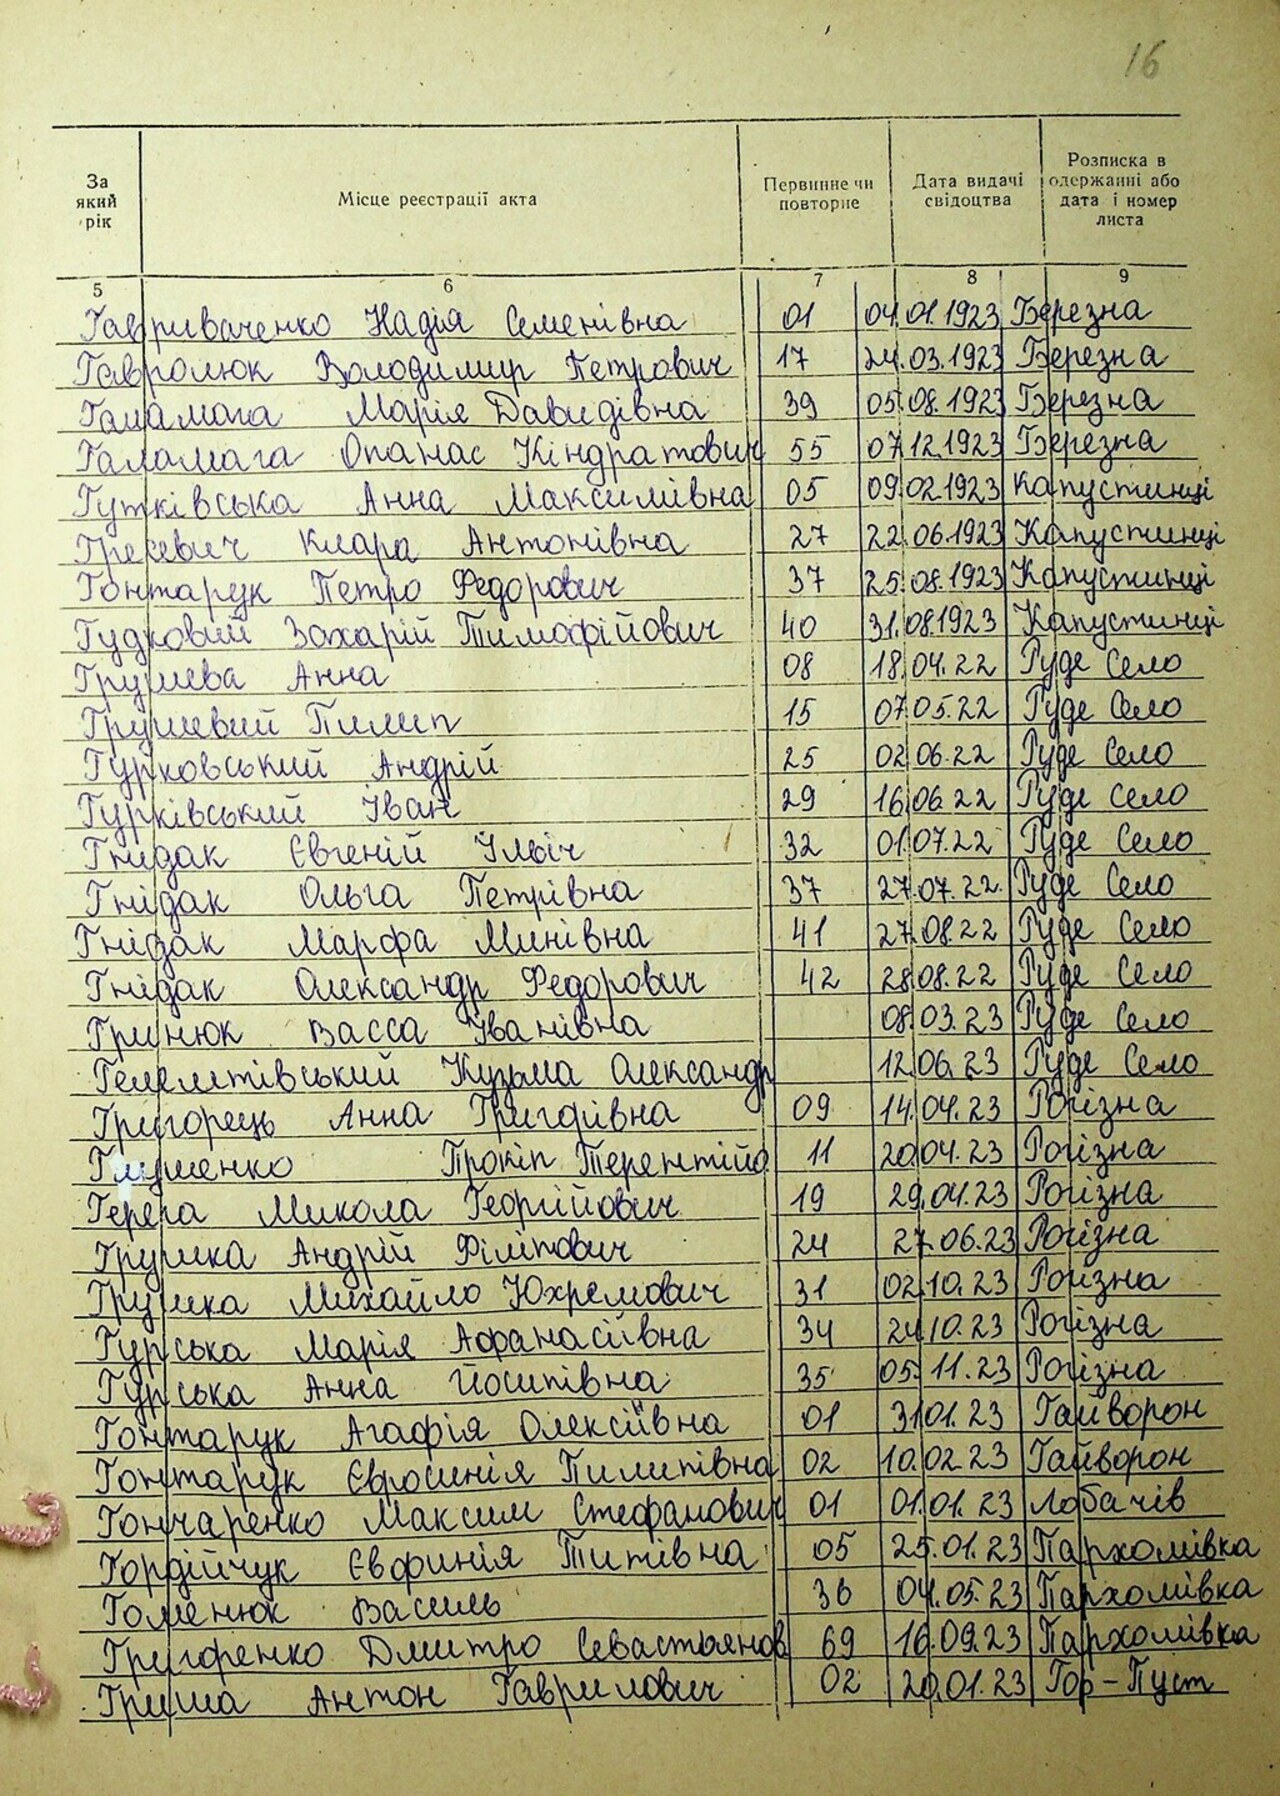 16
За який рік | Місце реєстрації акта | Первинне чи повторне | Дата видачі свідоцтва | Розписка в одержанні або дата і номер листа
5 6 7 8 9
Гавриваченко Надія Семенівна 01 04.01.1923 Березна
Гавролюк Володимир Петрович 17 24.03.1923 Березна
Марія Давидівна 39 05.08.1923 Березна
Галамага Опанас Кіндратович 55 07.12.1923 Березна
Гутківська Анна Максимівна 05 09.02.1923 Капустинці
Гресевич Клара Антонівна 27 22.06.1923 Капустинці
Гонтарук Петро Федорович 37 25.08.1923 Капустинці
Гудковий Захарій Тимофійович 40 31.08.1923 Капустинці
Грушева Анна 08 18.04.22 Руде Село
Грушевий Пилип 15 07.05.22 Руде Село
Гурковський Андрій 25 02.06.22 Руде Село
Гурківський Іван 29 16.06.22 Руде Село
Гнідак Євгеній Ілліч 32 01.07.22 Руде Село
Гнідак Ольга Петрівна 37 27.07.22. Руде Село
Гнідак Марфа Минівна 41 27.08.22 Руде Село
Гнідак Олександр Федорович 42 28.08.22 Руде Село
Гринюк Васса Іванівна 08.03.23 Руде Село
Кузьма Олександр 12.06.23 Руде Село
Григорець Анна Григорівна 09 14.04.23 Рогізна
Глуменко Прокіп Терентійо 11 20.04.23 Рогізна
Герега Микола Георгійович 19 29.04.23 Рогізна
Грушка Андрій Філіпович 24 27.06.23 Рогізна
Грушка Михайло Юхремович 31 02.10.23 Рогізна
Гурська Марія Афанасіївна 34 24.10.23 Рогізна
Гурська Анна Йосипівна 35 05.11.23 Рогізна
Гонтарук Агафія Олексіївна 01 31.01.23 Гайворон
Гонтарук Євросинія Пилипівна 02 10.02.23 Гайворон
Гончаренко Максим Стефанович 01 01.01.23 Лобачів
Гордійчук Євфинія Титівна 05 25.01.23 Пархомівка
Гоменюк Василь 36 04.05.23 Пархомівка
Григоренко Дмитро Севастьянов 69 16.09.23 Пархомівка
Гриша Антон Гаврилович 02 20.01.23 Гор-Пуст